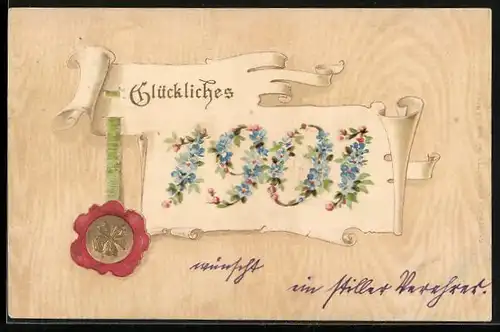 Glückliches
1901
wünscht
ein stiller Verehrer.